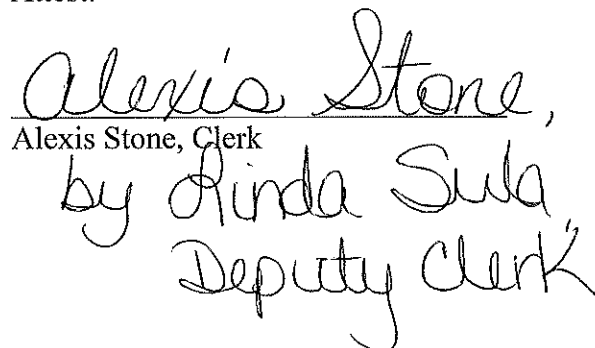 Attest:
Alexis Stone,
Alexis Stone, Clerk
by Linda Sula
Deputy Clerk